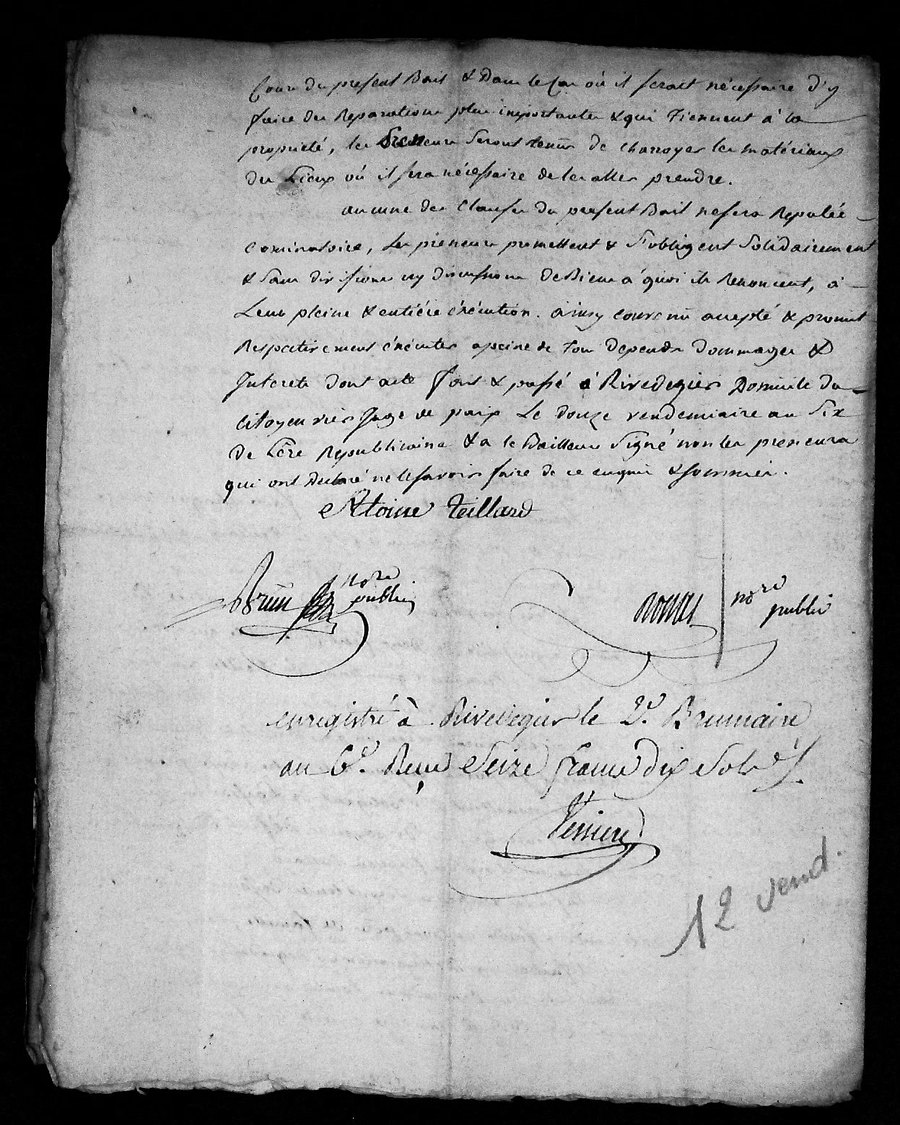 Cours du present Bail & Dans le Cas où il serait nécessaire d'y
faire des Reparations plus importantes & qui Tiennent à la
propriété, les preneurs seront tenus de charroyer les matériaux
des Lieux où il sera nécessaire de les aller prendre.
aucune des Clauses du present Bail ne sera Reputée
Cominatoire, Les preneurs promettent & s'obligent Solidairement
& sans division ny discussion de Biens a quoi ils Renoncent, à
Leur pleine & entiére éxécution. ainsy convenu accepté & promit
Respectivement éxécuter a peine de tous depends Dommages &
Interets dont acte fait & passé à Rivedegier Domicile du
Citoyen juge de paix Le douze vendemiaire an Six
de L'Ere Republicaine & a le Bailleur Signé non les preneurs
qui ont Déclaré ne le savoir faire de ce enquis & sommés.
Atoine Teillard
Brun no.re public
no.re public
enregistré à Rivedegier le 2.d Brumaire
an 6.e Reçu Seize francs dix Sols
12 vend.